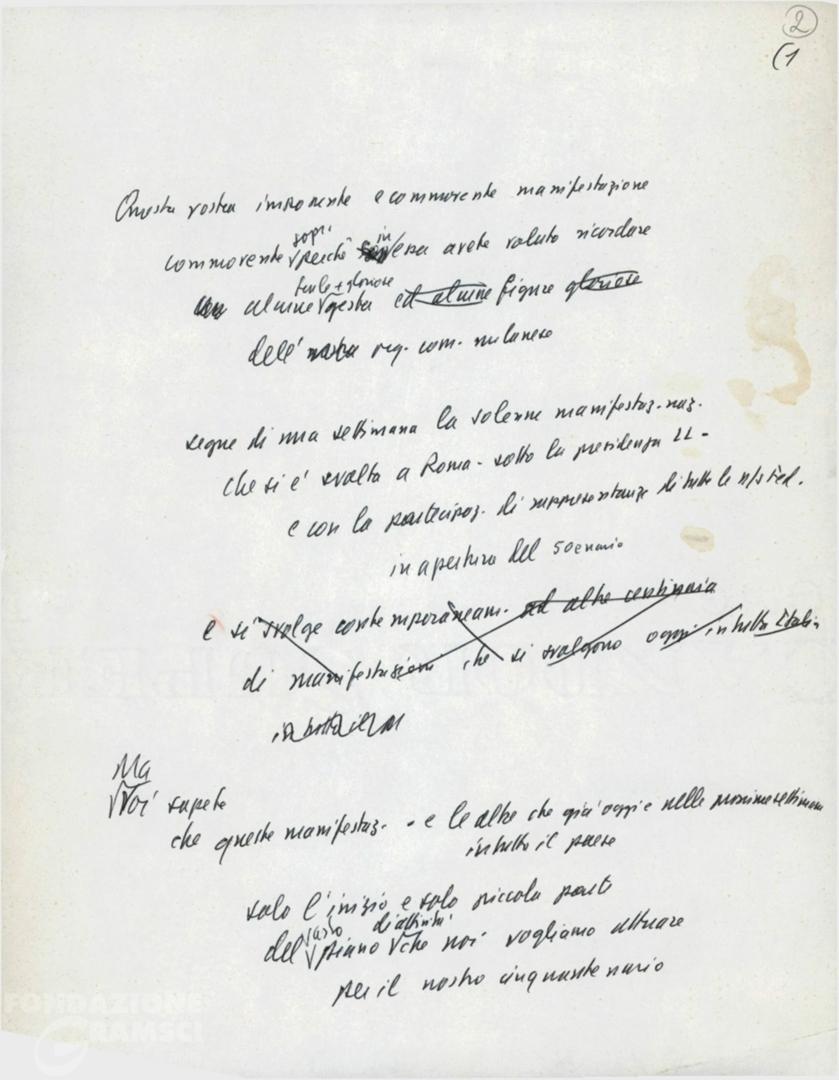 2
(1
Questa vostra imponente e commovente manifestazione
sopr. in
commovente perché essa avete voluto ricordare
belle + gloriose
alcune gesta ed alcune figure gloriose
dell' nostra org. com. milanese
segue di una settimana la solenne manifestaz. naz.
che si è svolta a Roma - sotto la presidenza LL -
e con la partecipaz. di rappresentanze di tutte le n/s Fed.
in apertura del 50enario
e si svolge contemporaneam. ed altre centinaia
di manifestazioni che si svolgono oggi in tutta Italia
in tutto il
Ma
Voi sapete
che queste manifestaz. - e le altre che già oggi e nelle prossime settimane
in tutto il paese
solo l'inizio e solo piccola parte
vasto di attività
del piano che noi vogliamo attuare
per il nostro cinquantenario
FONDAZIONE
GRAMSCI